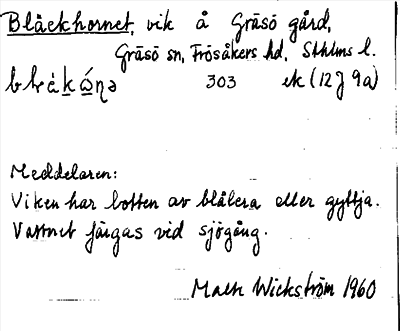 Bläckhornet, vik å Gräsö gård,
Gräsö sn, Frösåkers hd, Sthlms l.
303 ek (12J 9a)
Meddelaren:
Viken har botten av blålera eller gyttja.
Vattnet färgas vid sjögång.
Mats Wickström 1960